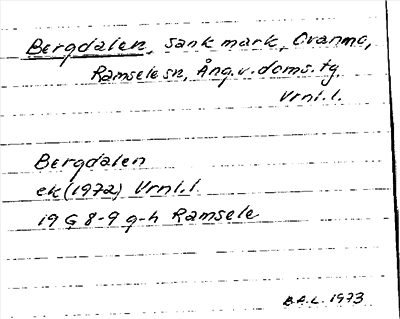 Bergdalen, sank mark, Ovanmo,
Ramsele sn, Ång. v. doms. tg
Vrnl. l.
Bergdalen
ek (1972) Vrnl. l.
19 G 8-9 g-h Ramsele
B.A.L. 1973